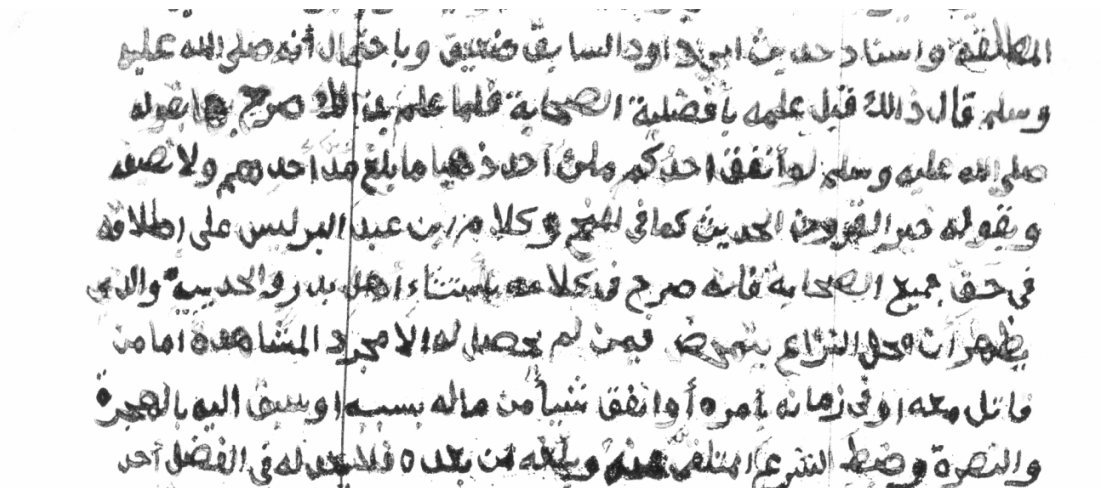 المطلقة واسناد حديث ابي داود السابق ضعيف وباحتمال أنه صلى الله عليه
وسلم قال ذالك قبل علمه بأفضلية الصحابة فلما علم بذالك صرح بها بقوله
صلى الله عليه وسلم لو أنفق احدكم ملئ أحد ذهبا ما بلغ مد أحدهم ولا نصفه
وبقوله خير القرون الحديث كما في المنح وكلام ابن عبد البر ليس على إطلاقه
في حق جميع الصحابة فانه صرح في كلامه باستثناء أهل بدر والحديبية والذي
يظهر أن محل النزاع يتمحض فيمن لم يحصل له إلا مجرد المشاهدة اما من
قاتل معه او في زمانه بأمره أو انفق شيأ من ماله بسببه او سبق اليه بالهجرة
والنصرة وضبط الشرع المتلقى عنه وبلغه من بعده فلا يعدله في الفضل أحد